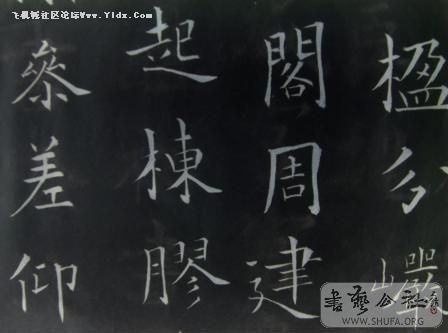 社区论坛Www.Yldx.com
楹分巖
閣周建
起棟膠
叅差仰
書藝公社
WWW.SHUFA.ORG